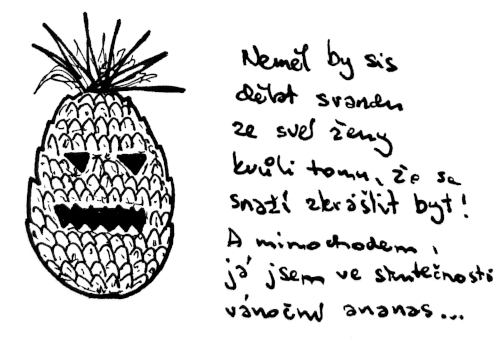 Neměl by sis
dělat srandu
ze své ženy
kvůli tomu, že se
snaží zkrášlit byt!
A mimochodem,
já jsem ve skutečnosti
vánoční ananas...